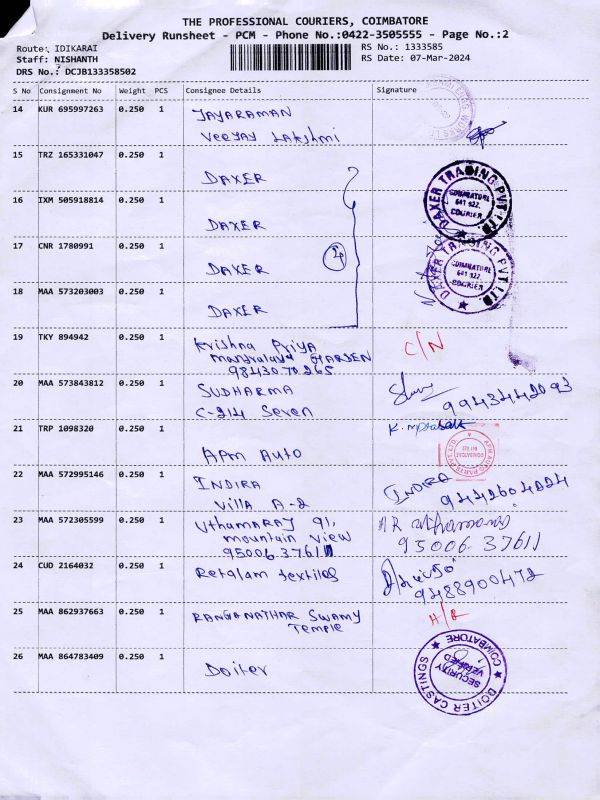 THE PROFESSIONAL COURIERS, COIMBATORE
Delivery Runsheet - PCM - Phone No.:0422-3505555 - Page No.:2
Route: IDIKARAI
Staff: NISHANTH
DRS No.: DCJB133358502
RS No.: 1333585
RS Date: 07-Mar-2024
S No Consignment No Weight PCS Consignee Details Signature
14 KUR 695997263 0.250 1 JAYARAMAN
Veejay Lakshmi
15 TRZ 165331047 0.250 1
DAXER
16 IXM 505918814 0.250 1
DAXER
17 CNR 1780991 0.250 1
DAXER
18 MAA 573203003 0.250 1
DAXER
DAXER TRADING PVT LTD
COIMBATORE
641 022.
COURIER
DAXER TRADING PVT LTD
COIMBATORE
641 022.
COURIER
19 TKY 894942 0.250 1 Krishna Priya C/N
GARDEN
9843070265
20 MAA 573843812 0.250 1 SUDHARMA
C-214 Seven 9943442093
21 TRP 1098320 0.250 1
APM Auto
22 MAA 572995146 0.250 1 INDIRA INDIRA
Villa A-2
23 MAA 572305599 0.250 1 Uthamaraj 91,
mountain view
95006 37611 95006 37611
24 CUD 2164032 0.250 1 textiles
9488900472
25 MAA 862937663 0.250 1 RANGANATHAR SWAMY
TEMPLE
26 MAA 864783409 0.250 1
Doiter
DOITER CASTINGS
COIMBATORE
SECURITY
VERIFIED